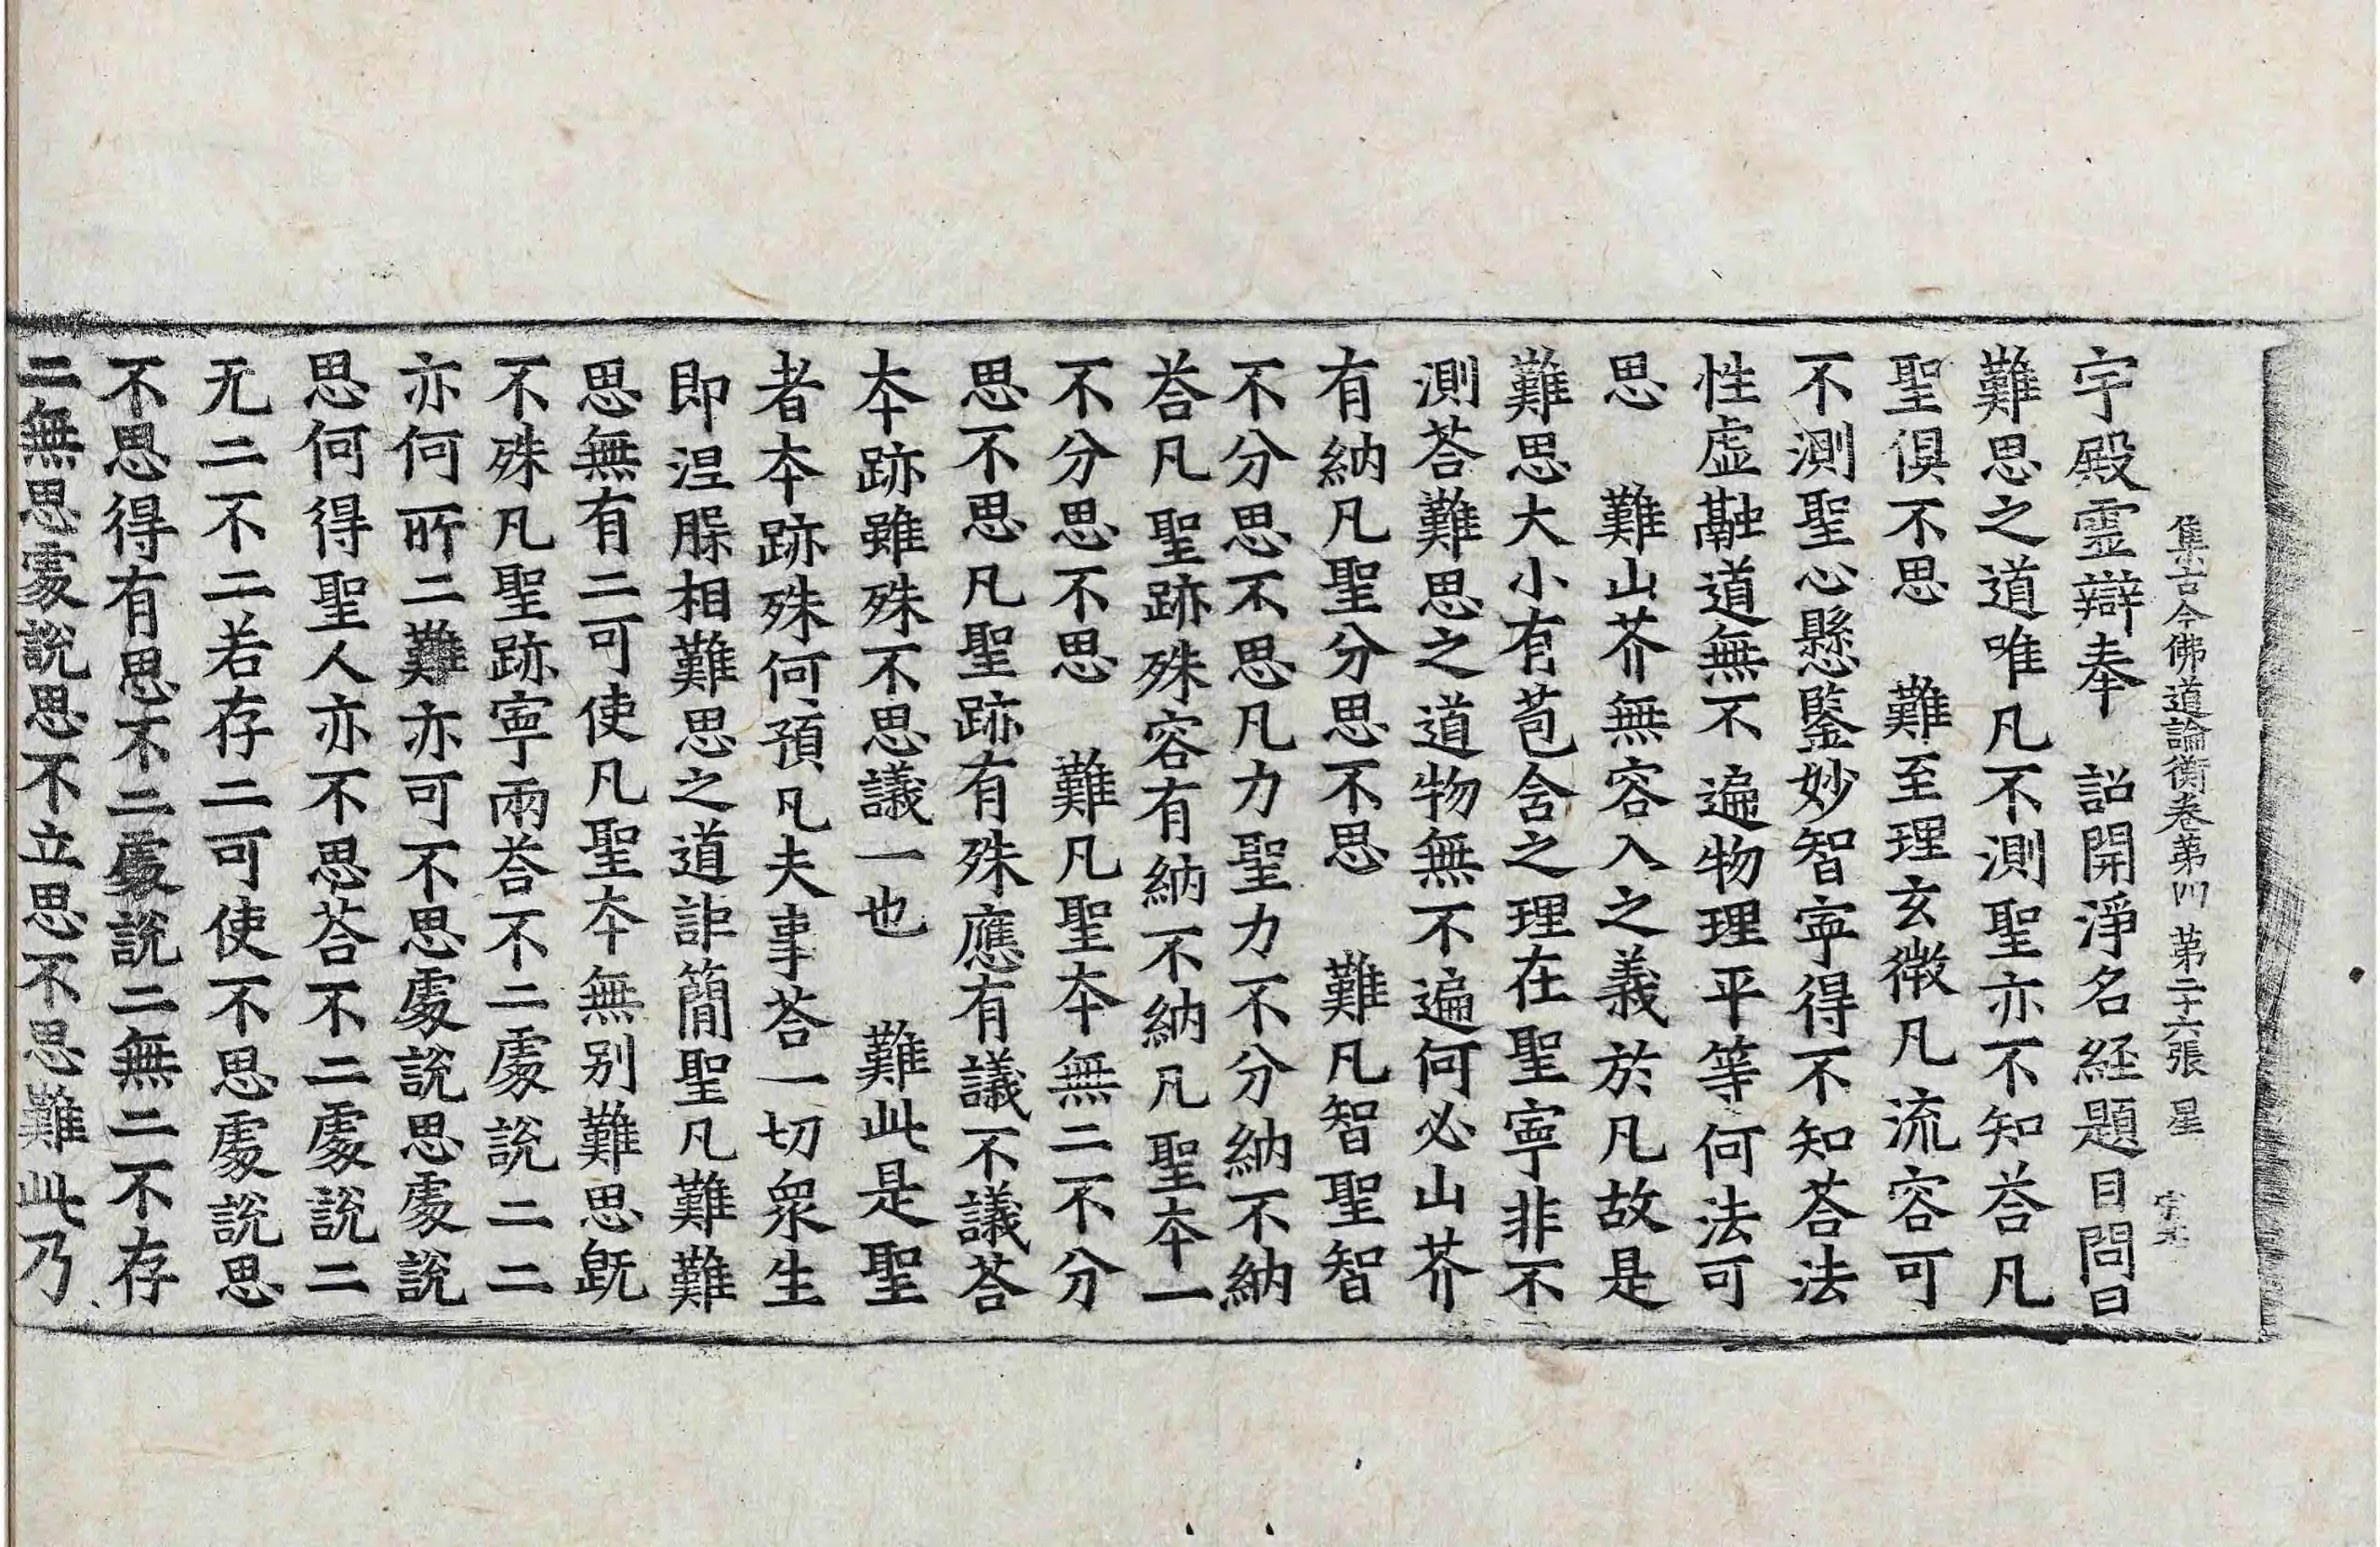 集古今佛道論衡卷第四 第二十六張 星
宇殿霊辯奉 詔開淨名経題目問曰
難思之道唯凡不測聖亦不知荅凡
聖俱不思 難至理玄微凡流容可
不測聖心懸鑒妙智寧得不知荅法
性虚融道無不遍物理平等何法可
思 難山芥無容入之義於凡故是
難思大小有苞含之理在聖寧非不
測荅難思之道物無不遍何必山芥
有納凡聖分思不思 難凡智聖智
不分思不思凡力聖力不分納不納
荅凡聖跡殊容有納不納凡聖夲一
不分思不思 難凡聖夲無二不分
思不思凡聖跡有殊應有議不議荅
夲跡雖殊不思議一也 難此是聖
者夲跡殊何預凡夫事荅一切衆生
即涅脲相難思之道詎簡聖凡難難
思無有二可使凡聖夲無別難思旣
不殊凡聖跡寧兩荅不二處說二二
亦何所二難亦可不思處說思處說
思何得聖人亦不思荅不二處說二
无二不二若存二可使不思處說思
不思得有思不二處說二無二不存
二無思處說思不立思不思難此乃